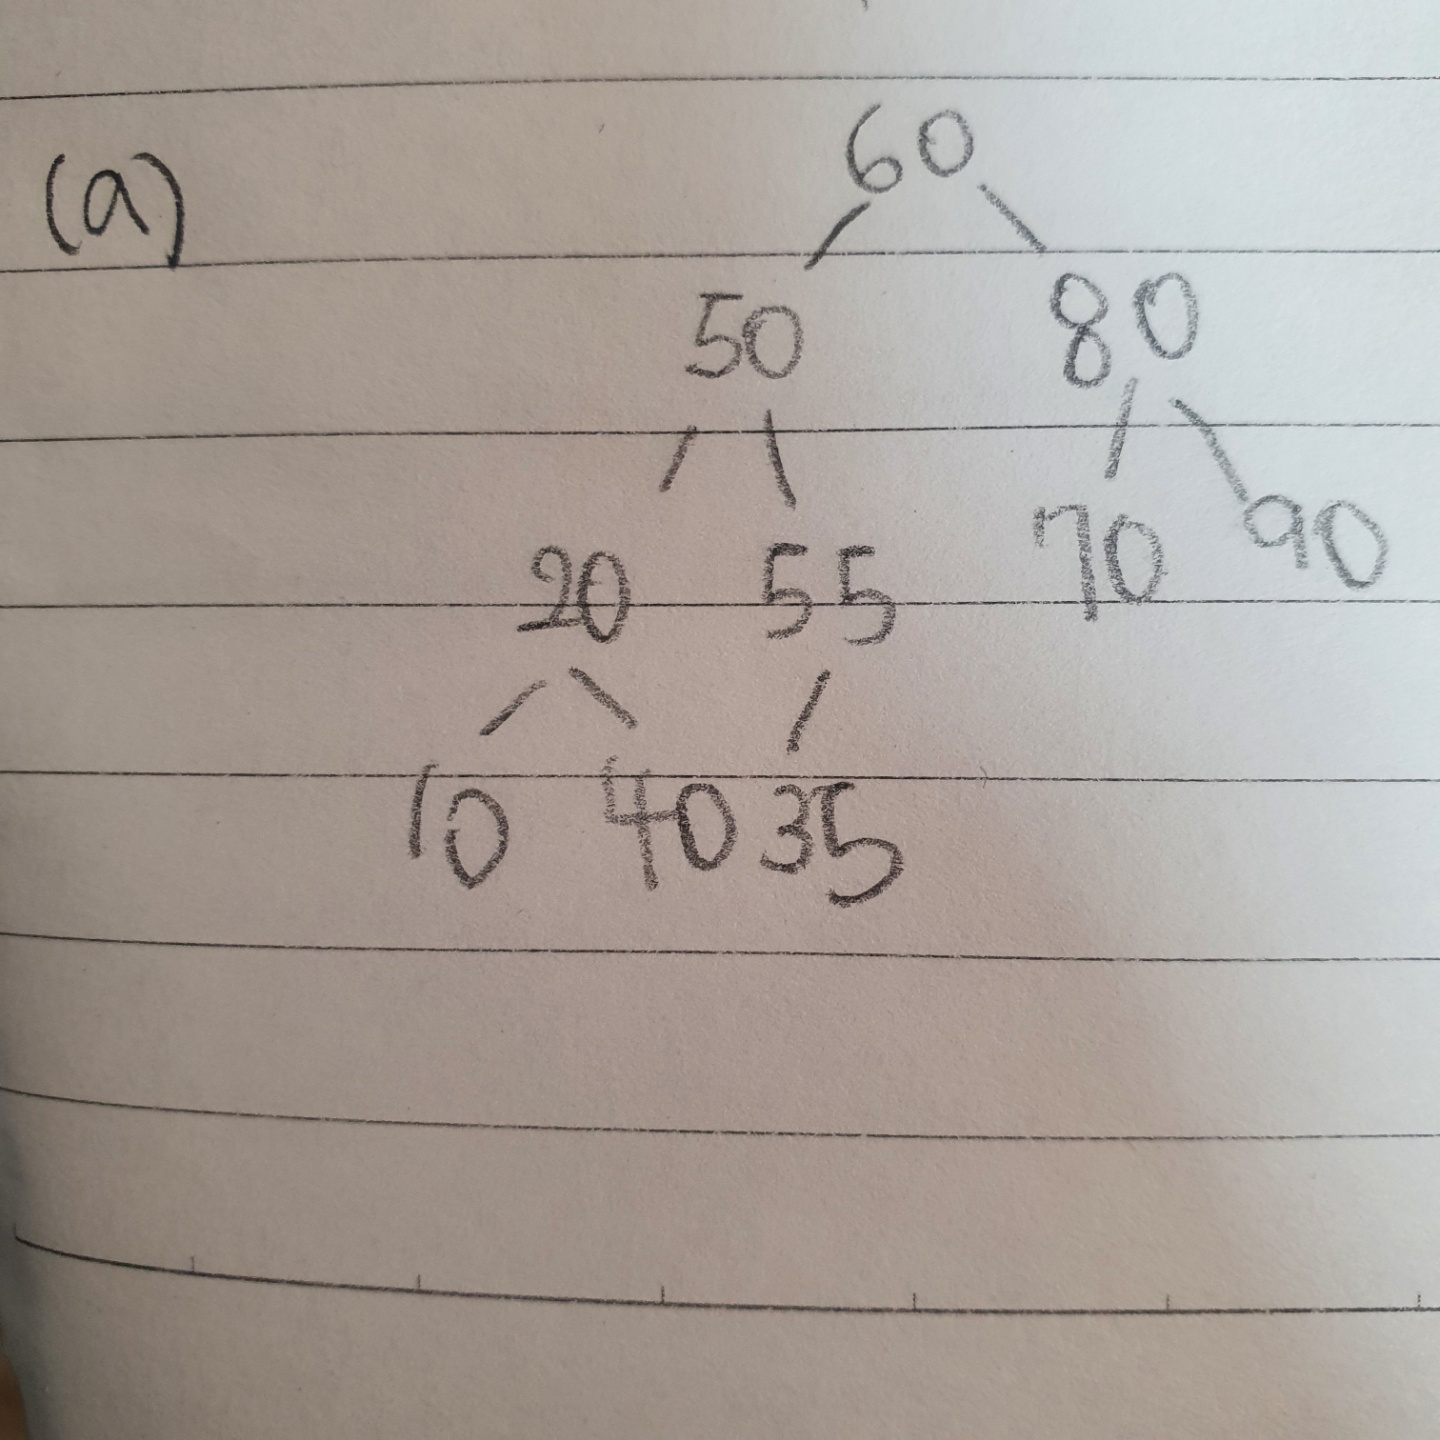 (a) 60
50 80
20 55 70 90
10 40 35